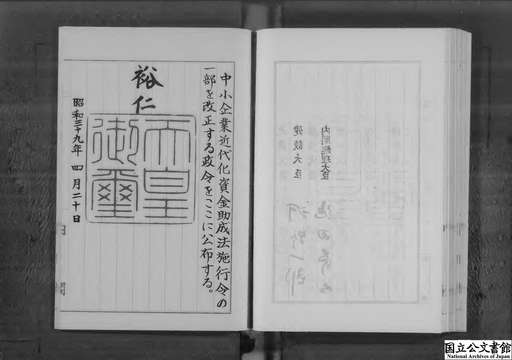 中小企業近代化資金助成法施行令の
一部を改正する政令をここに公布する。
裕仁
天皇
御璽
昭和三十九年 四月二十日
内閣総理大臣
建設大臣
国立公文書館
National Archives of Japan